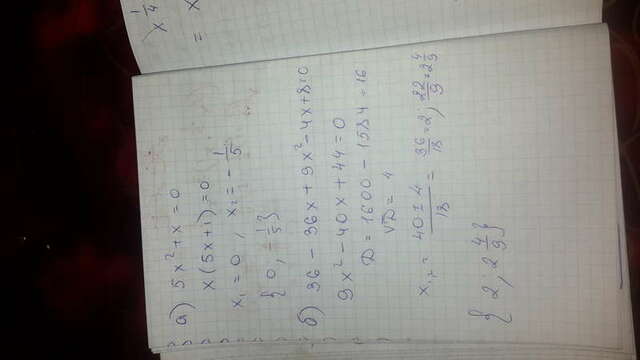 а) 5x² + x = 0
x(5x+1) = 0
x₁ = 0, x₂ = -1/5
{0, -1/5}
б) 36 - 36x + 9x² - 4x + 8 = 0
9x² - 40x + 44 = 0
D = 1600 - 1584 = 16
√D = 4
x₁,₂ = 40±4/18 = 36/18 = 2; 22/9 = 2 4/9
{2, 2 4/9}
x 1/4
= x